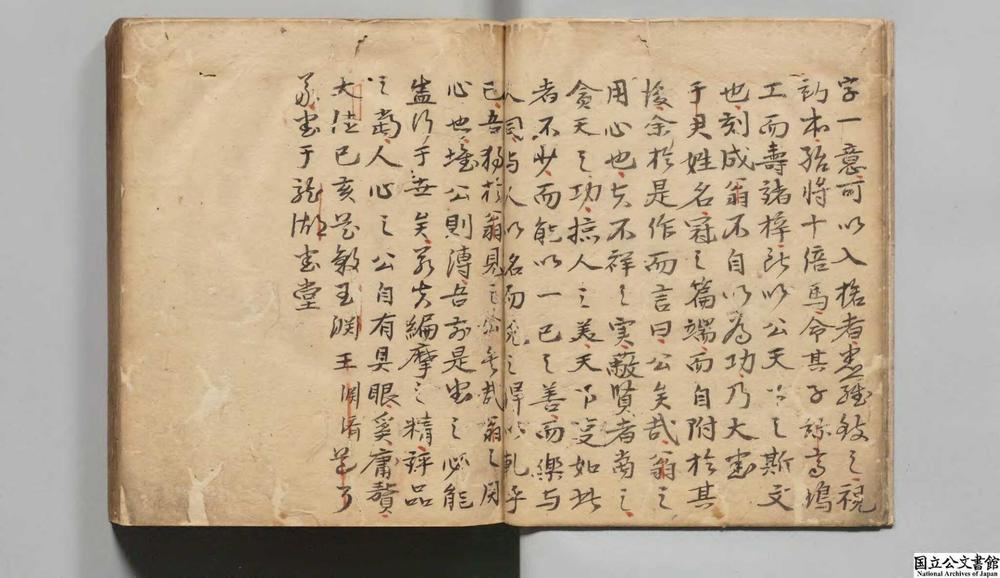 字一意可以入格者悉羅致之視
本殆將十倍焉命其子高塢
工而壽諸梓以公天下之斯文
也刻成翁不自以為功乃大書
于君姓名冠之篇端而自附於其
後余於是作而言曰公矣哉翁之
用心也夫不祥之実蔽賢者當之
貪天之功掠人之美天下如此
者不少而能以一己之善而樂与
人同与人以名而之以軋乎
己吾獨於翁見之哉翁之用
心也公則溥吾知是書之必能
盛行于世矣若夫編摩之精評品
之當人心之公自有具眼奚庸贅
大德己亥玉渕王渕濟道可
書于龍湖書堂
国立公文書館
National Archives of Japan